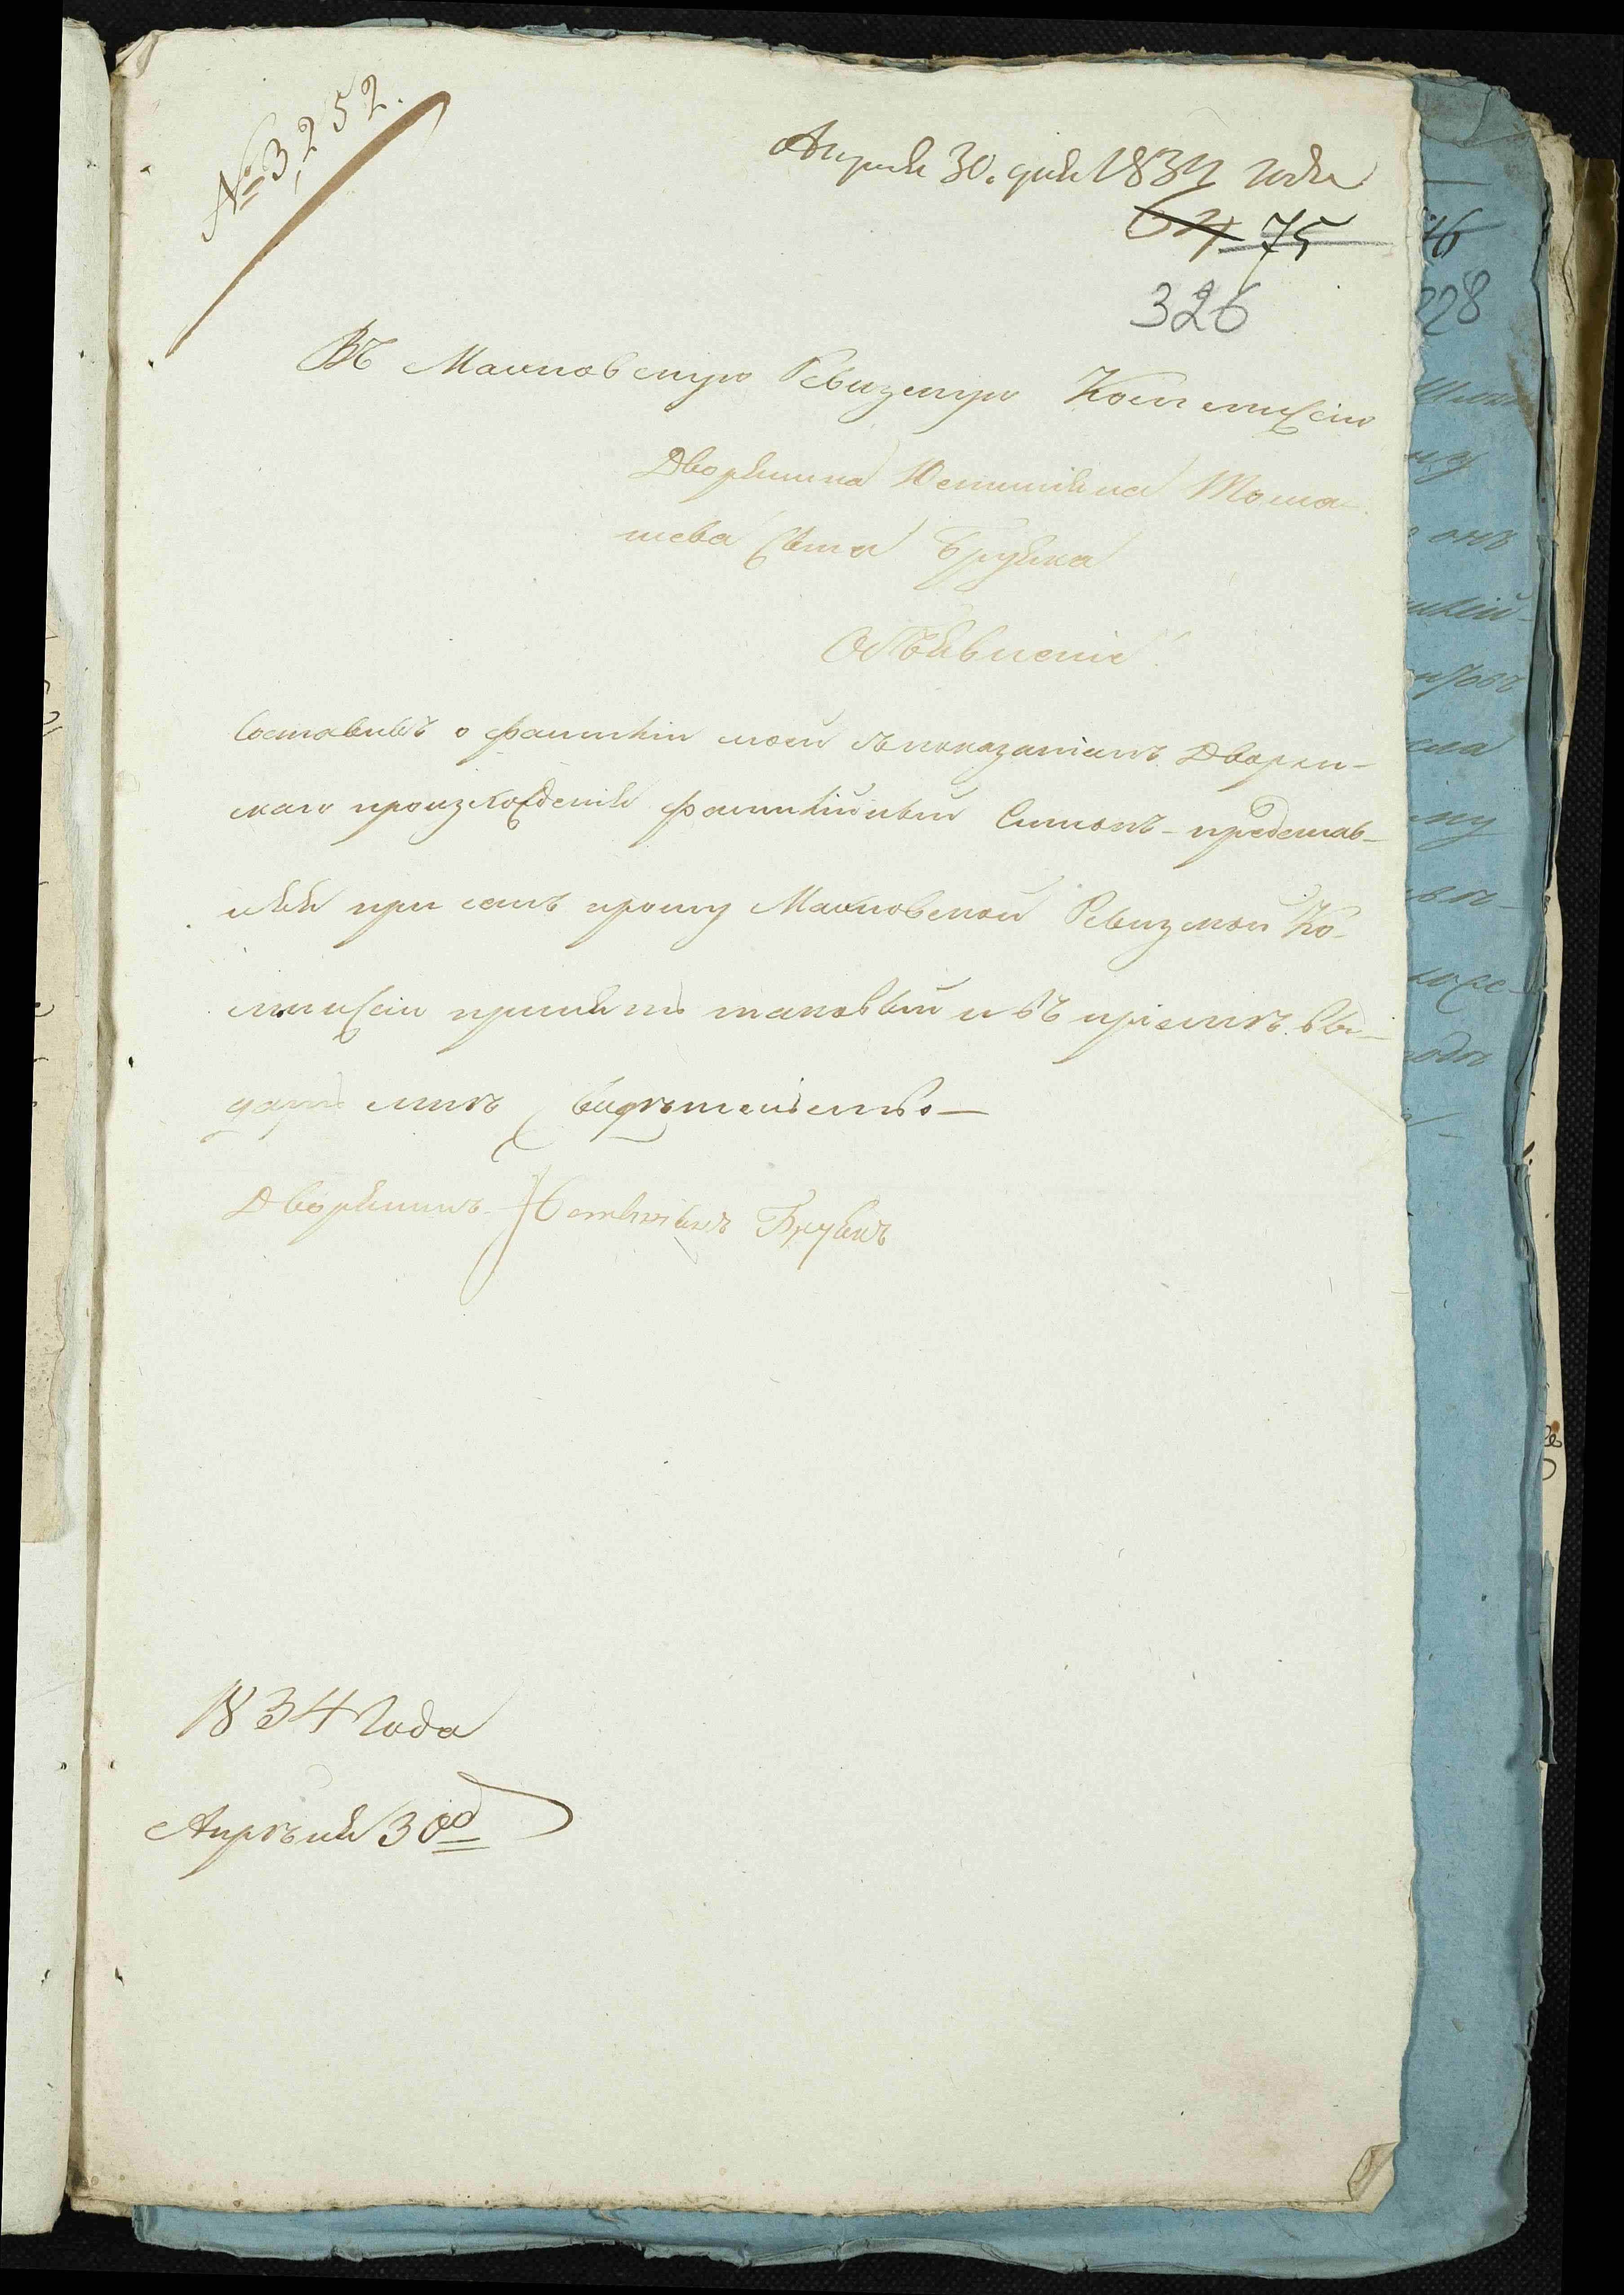 № 3,252.
Апреля 30. дня 1834 года
64 75
326
Въ Махновскую Ревизкую Коммисію
Дворянина Юстиніяна Тома-
шева сына Бруяка
Объявленіе
Составивъ о фамиліи моей съ показаніемъ Дворян-
скаго произхожденія фамилійный Списокъ – представ-
ляя при семъ прошу Махновской Ревизкой Ко-
ммисіи принять таковый и въ пріемѣ вы-
дать мнѣ свидѣтельство –
Дворянинъ
1834 Года
Апрѣля 30 д